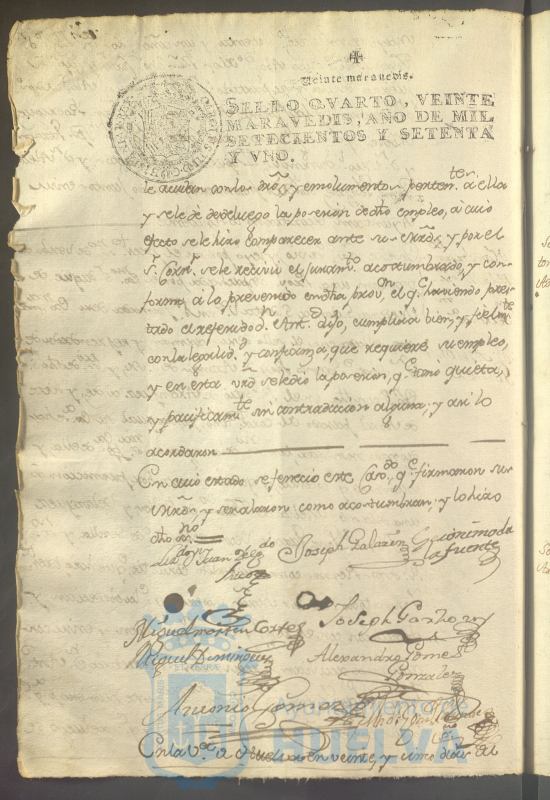 Veinte maravedis.
SELLO QVARTO, VEINTE
MARAVEDIS, AÑO DE MIL
SETECIENTOS Y SETENTA
Y VNO.
le acuden con los dros y emolumentos pertents. a ella
y se le dé desde luego la posesion de dho empleo, a cuio
efecto se le hizo comparecer ante su mrds, y por el
Sr. Corrr. se le recivió el juramto. acostumbrado, y con-
forme a lo prevenido en dha provn. el qe. haviendo pres-
tado el referido dn. Antt. dijo, cumplirá bien, y fielmte.
con la legalidd. y confianza que requiere su empleo,
y en esta vrd se le dio la posesion, qe. tomó quieta,
y pacificamte. sin contradiccion alguna; y asi lo
acordaron.
En cuio estado se feneció este Cavdo. qe. firmaron sus
mrds, y señalaron como acostumbran; y lo hizo
dho
Juan
Joseph Galazin
Geronimo de
la fuente
Miguel Martin Cortes
Joseph Garzon
Miguel Dominguez
Alexandro Gomes
Gonzales
Antonio Gomez
Ayuntamiento de
HUELVA
En la Va. de Huelva en veinte, y cinco dias del